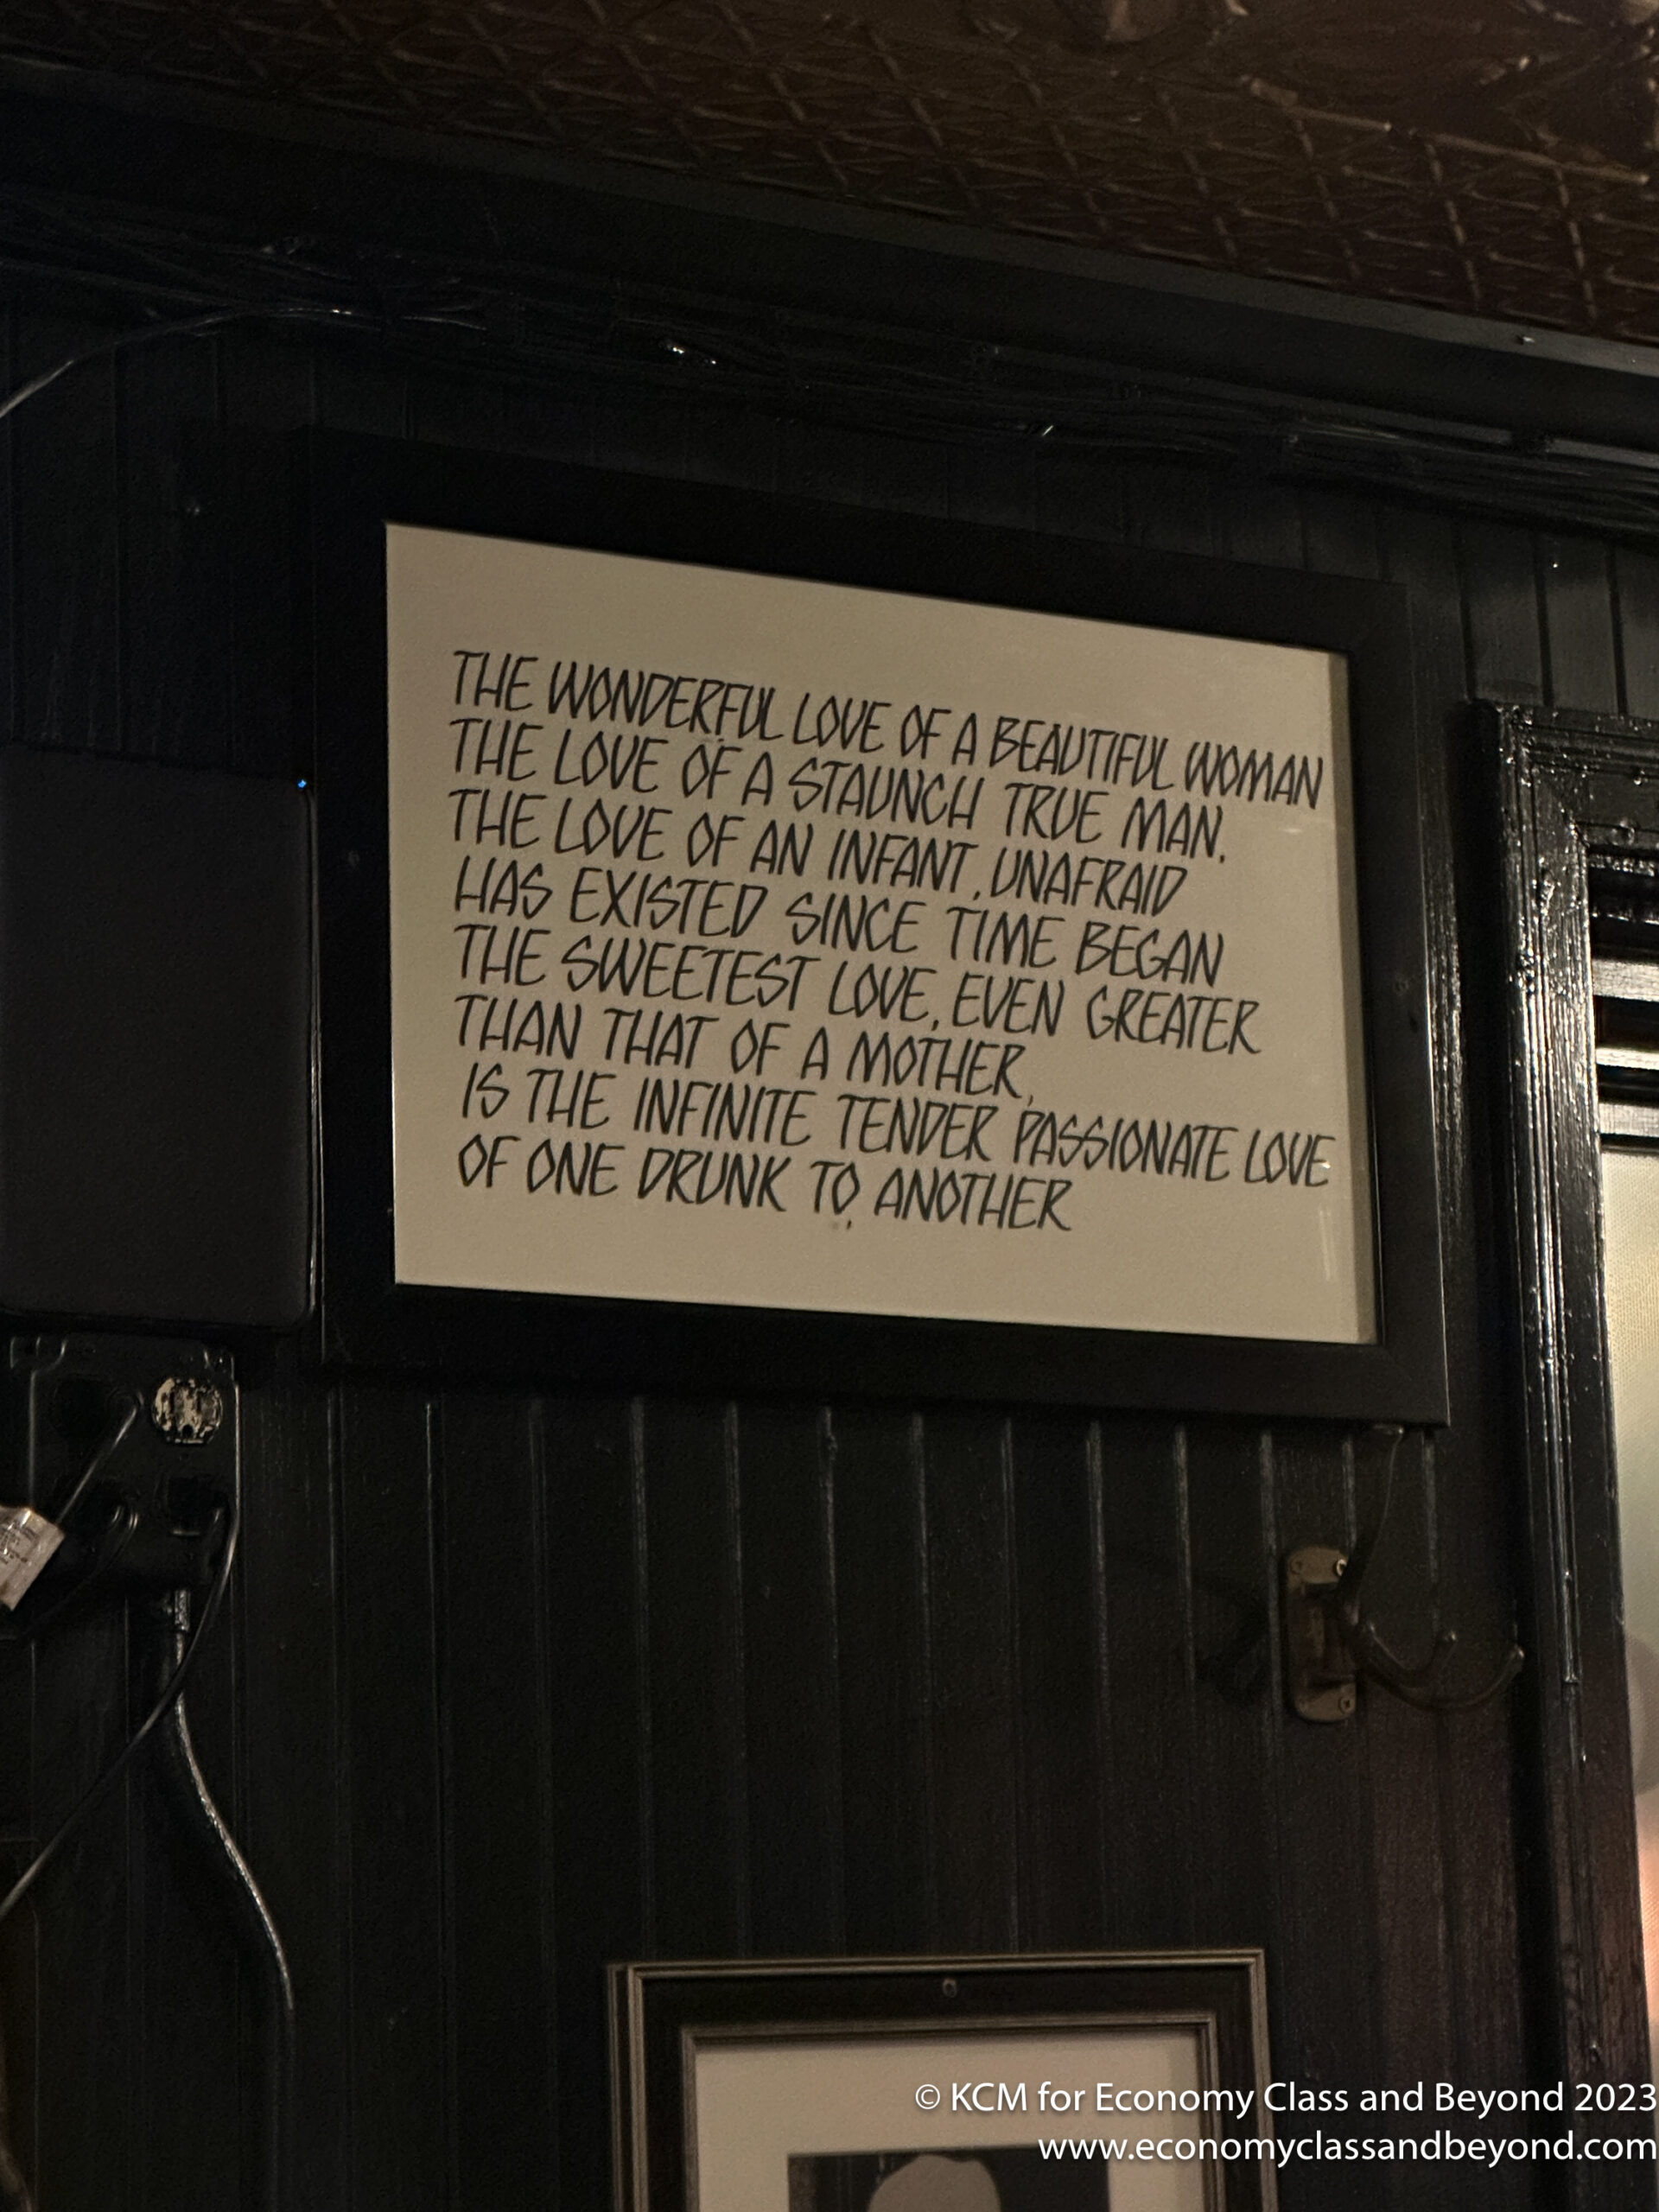 THE WONDERFUL LOVE OF A BEAUTIFUL WOMAN
THE LOVE OF A STAUNCH TRUE MAN.
THE LOVE OF AN INFANT, UNAFRAID
HAS EXISTED SINCE TIME BEGAN
THE SWEETEST LOVE, EVEN GREATER
THAN THAT OF A MOTHER,
IS THE INFINITE TENDER PASSIONATE LOVE
OF ONE DRUNK TO ANOTHER
© KCM for Economy Class and Beyond 2023
www.economyclassandbeyond.com